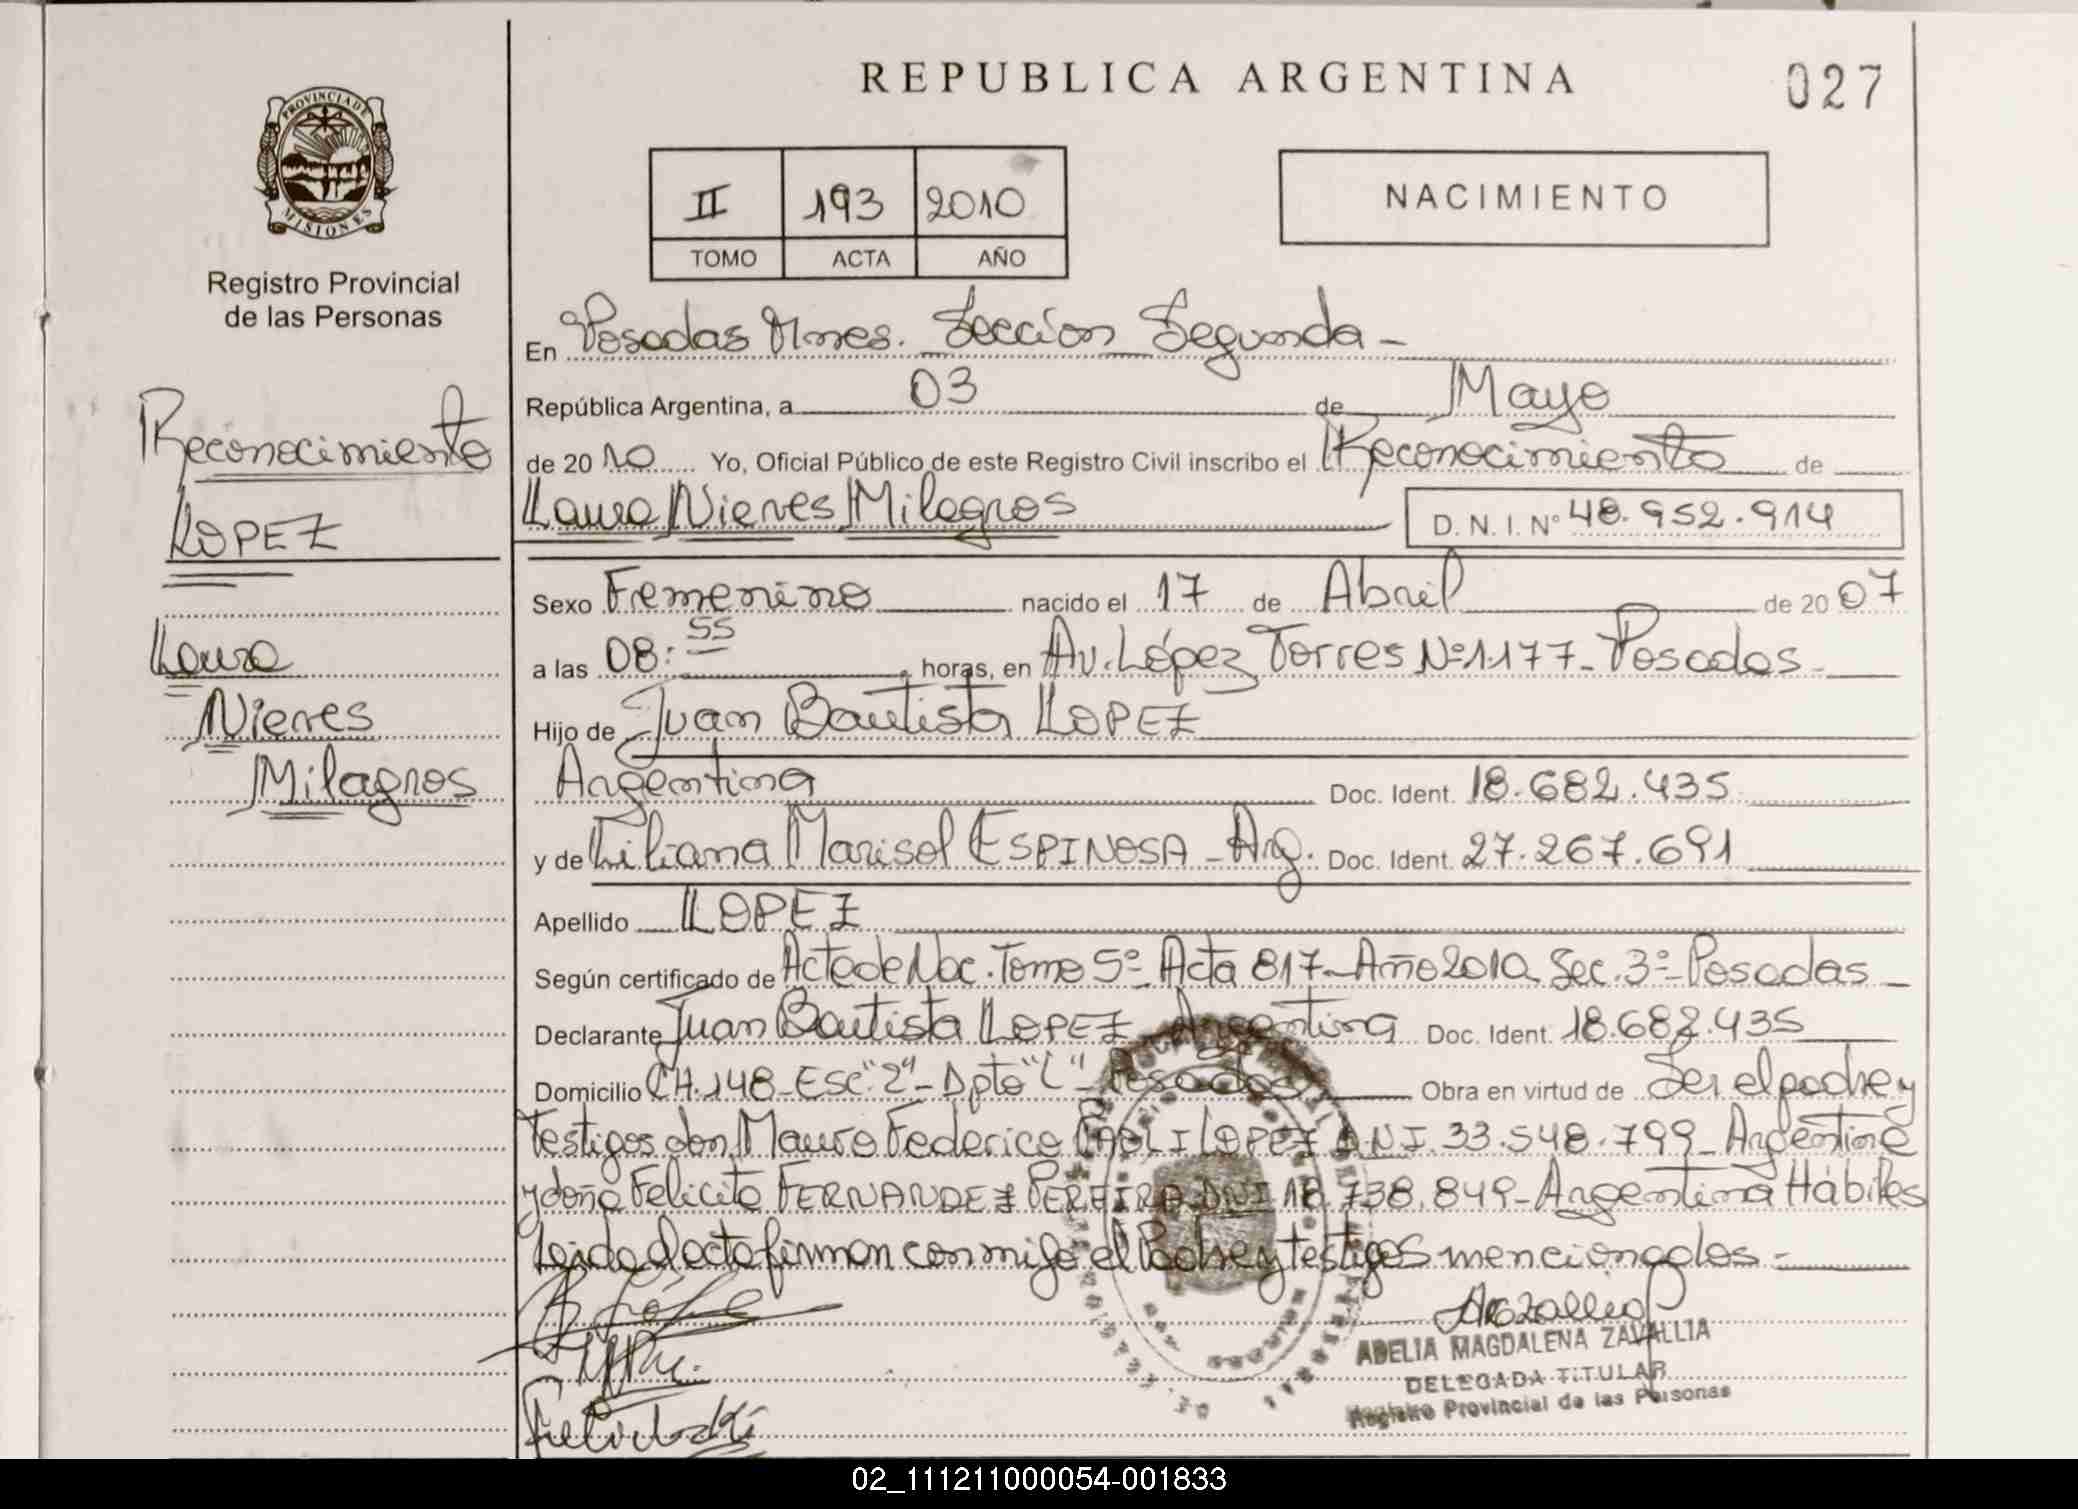 REPUBLICA ARGENTINA
027
PROVINCIA DE
MISIONES
Registro Provincial
de las Personas
II 193 2010
TOMO ACTA AÑO
NACIMIENTO
Reconocimiento
LOPEZ
Laura
Nieves
Milagros
En Posadas Mnes. Sección Segunda -
República Argentina, a 03 de Mayo
de 2010 Yo, Oficial Público de este Registro Civil inscribo el Reconocimiento de
Laura Nieves Milagros D. N. I. Nº 48.952.914
Sexo Femenino nacido el 17 de Abril de 2007
a las 08:55 horas, en Av. López Torres Nº 1177 - Posadas -
Hijo de Juan Bautista LOPEZ
Argentina Doc. Ident. 18.682.435
y de Liliana Marisol ESPINOSA - Arg. Doc. Ident. 27.267.691
Apellido LOPEZ
Según certificado de Acta de Nac. Tomo 5º - Acta 817 - Año 2010 Sec. 3º - Posadas -
Declarante Juan Bautista LOPEZ Argentina Doc. Ident. 18.682.435
Domicilio CH. 148 - Esc "2" - Dpto "C" - Posadas Obra en virtud de Ser el padre y
Testigos don Mauro Federico PAOLI LOPEZ DNI. 33.548.799 - Argentina
y doña Felicita FERNANDEZ PEREIRA DNI 18.738.849 - Argentina Hábiles
Leida el acta firman conmigo el Padre y testigos mencionados -
ADELIA MAGDALENA ZAVALLIA
DELEGADA TITULAR
Registro Provincial de las Personas
02_111211000054-001833